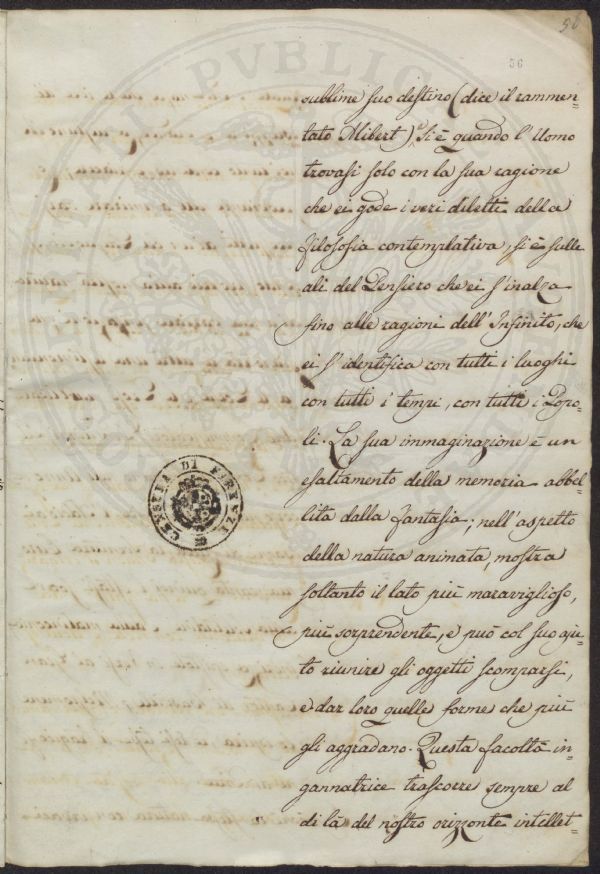 56
56
sublime suo destino (dice il rammen=
tato Alibert), Si è quando l'Uomo
trovasi solo con la sua ragione
che ei gode i veri diletti della
filosofia contemplativa, si è sulle
ali del Pensiero che ei s'inalza
fino alle ragioni dell'Infinito, che
ei s'identifica con tutti i luoghi
con tutti i tempi, con tutti i Popo=
li. La sua immaginazione è un
esaltamento della memoria abbel=
lita dalla fantasia; nell'aspetto
della natura animata, mostra
soltanto il lato più maraviglioso,
più sorprendente, e può col suo aju=
to riunire gli oggetti scomparsi,
e dar loro quelle forme che più
gli aggradano. Questa facoltà in=
gannatrice trascorre sempre al
di là del nostro orizzonte intellet=
DI FIRENZE
PVBLICA